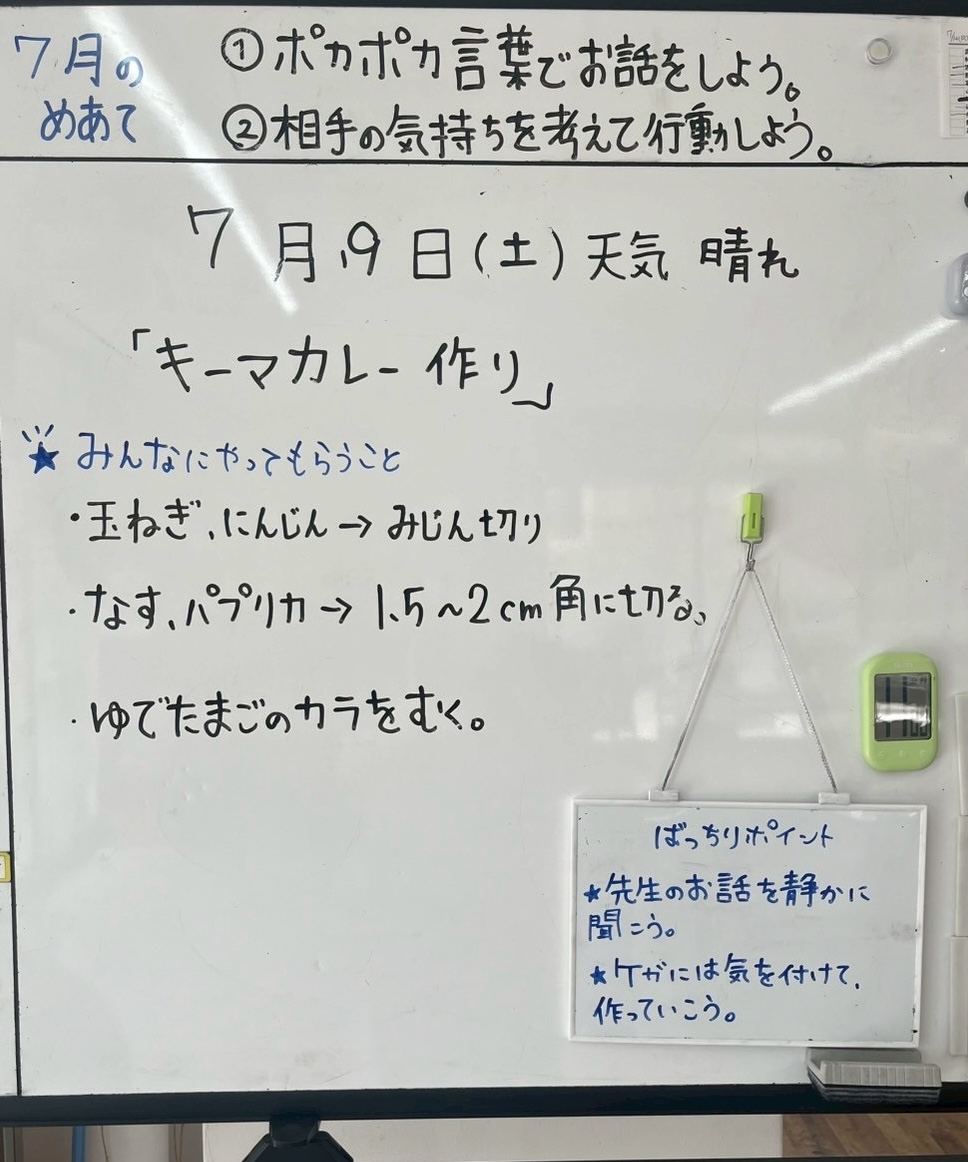 7月の
めあて
①ポカポカ言葉でお話をしよう。
②相手の気持ちを考えて行動しよう。
7月9日(土)天気 晴れ
「キーマカレー作り」
★みんなにやってもらうこと
・玉ねぎ、にんじん→みじん切り
・なす、パプリカ→1.5~2cm角に切る、
・ゆでたまごのカラをむく。
ばっちりポイント
★先生のお話を静かに
聞こう。
★ケガには気を付けて、
作っていこう。